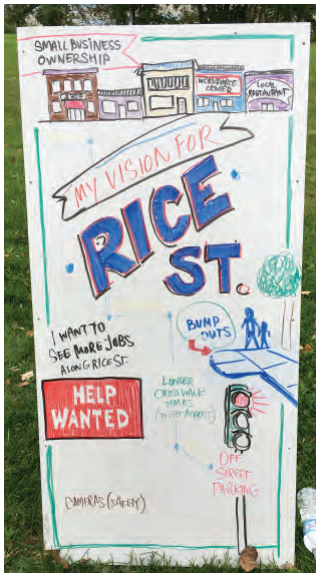 SMALL BUSINESS
OWNERSHIP
WORKFORCE
CENTER
LOCAL
RESTAURANT
MY VISION FOR
RICE
ST.
I WANT TO
SEE MORE JOBS
ALONG RICE ST.
BUMP
OUTS
HELP
WANTED
LONGER
CROSSWALK
TIMES
OFF
STREET
PARKING
CAMERAS (SAFETY)